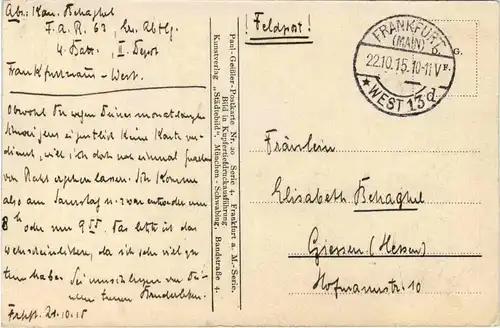 Abs: Kan. Behaghel
F. A. R. 63, Ers. Abtlg.
4. Batr., II. Depot
Frankfurtmain-West.
Obwohl Du wegen Deines monatelangen
Schweigens eigentlich keine Karte ver-
dienst, will ich doch noch einmal Gnade
vor Recht ergehen lassen. Ich komme
also am Samstag u. zwar entweder um
8h oder um 9
Das letzte ist das
wahrscheinlichere, da ich sehr viel zu
tun habe. Sei umschlungen von
Deinem treuen Bruderherz.
Frkft. 21.10.15
Paul-Geißler-Postkarte Nr. 20 Serie 4. Frankfurt a. M.-Serie.
Bild in Kupfertiefdruckausführung
Kunstverlag „Städtebild“, München-Schwabing, Bandstraße 4.
! Feldpost !
FRANKFURT
(MAIN)
22.10.15.10-11V
* WEST 13 d
Fräulein
Elisabeth Behaghel
Giessen (Hessen)
Hofmannstr. 10